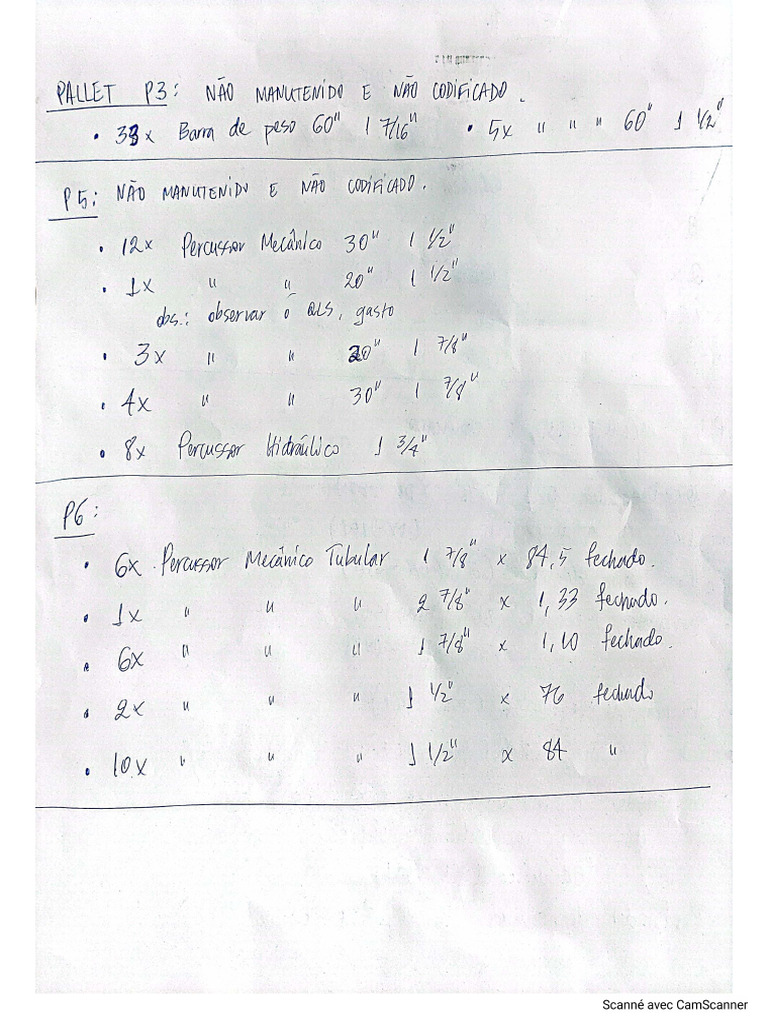 PALLET P3: NÃO MANUTENIDO E NÃO CODIFICADO.
• 33x Barra de peso 60" 1 7/16" • 5x " " " 60" 1 1/2"
P5: NÃO MANUTENIDO E NÃO CODIFICADO.
• 12x Percussor Mecânico 30" 1 1/2"
• 1x " " 20" 1 1/2"
obs.: observar o QLS, gasto
• 3x " " 20" 1 7/8"
• 4x " " 30" 1 7/8"
• 8x Percussor Hidráulico 1 3/4"
P6:
• 6x Percussor Mecânico Tubular 1 7/8" x 84,5 fechado.
• 1x " " " 2 7/8" x 1,33 fechado.
• 6x " " " 1 7/8" x 1,10 fechado.
• 2x " " " 1 1/2" x 76 fechado
• 10x " " " 1 1/2" x 84 "
Scanné avec CamScanner